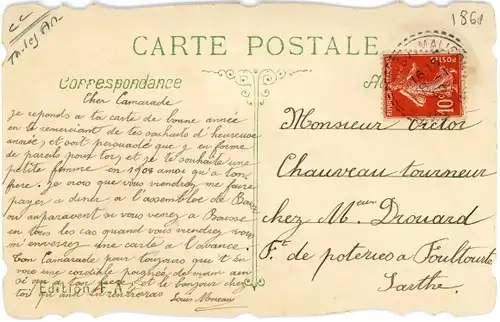 1868
CARTE POSTALE
Correspondance
MALICO
REPUBLIQUE FRANÇAISE
POSTES
10c
Cher Camarade
Je reponds a ta carte de bonne année
en te remerciant de tes souhaits d'heureuse
année, et soit persuadé que j en forme
de pareils pour toi, et je te souhaite une
petite femme en 1908 ainsi qu'a ton
frere. Je crois que vous viendrez me faire
payer a diner a l'assemblée de
ou auparavent si vous venez a
en tous les cas quand vous viendrez vous
m'enverrez une carte a l'avance.
Ton Camarade pour toujours que t'en
voie une cordiale poignée de main ain
si qu a ton frere, et le bonjour chez
toi quand tu rentreras
Louis Moreau
Edition F. A.
Monsieur Victor
Chauveau tourneur
chez Mr Drouard
Ft de poteries a Foultourte
Sarthe.